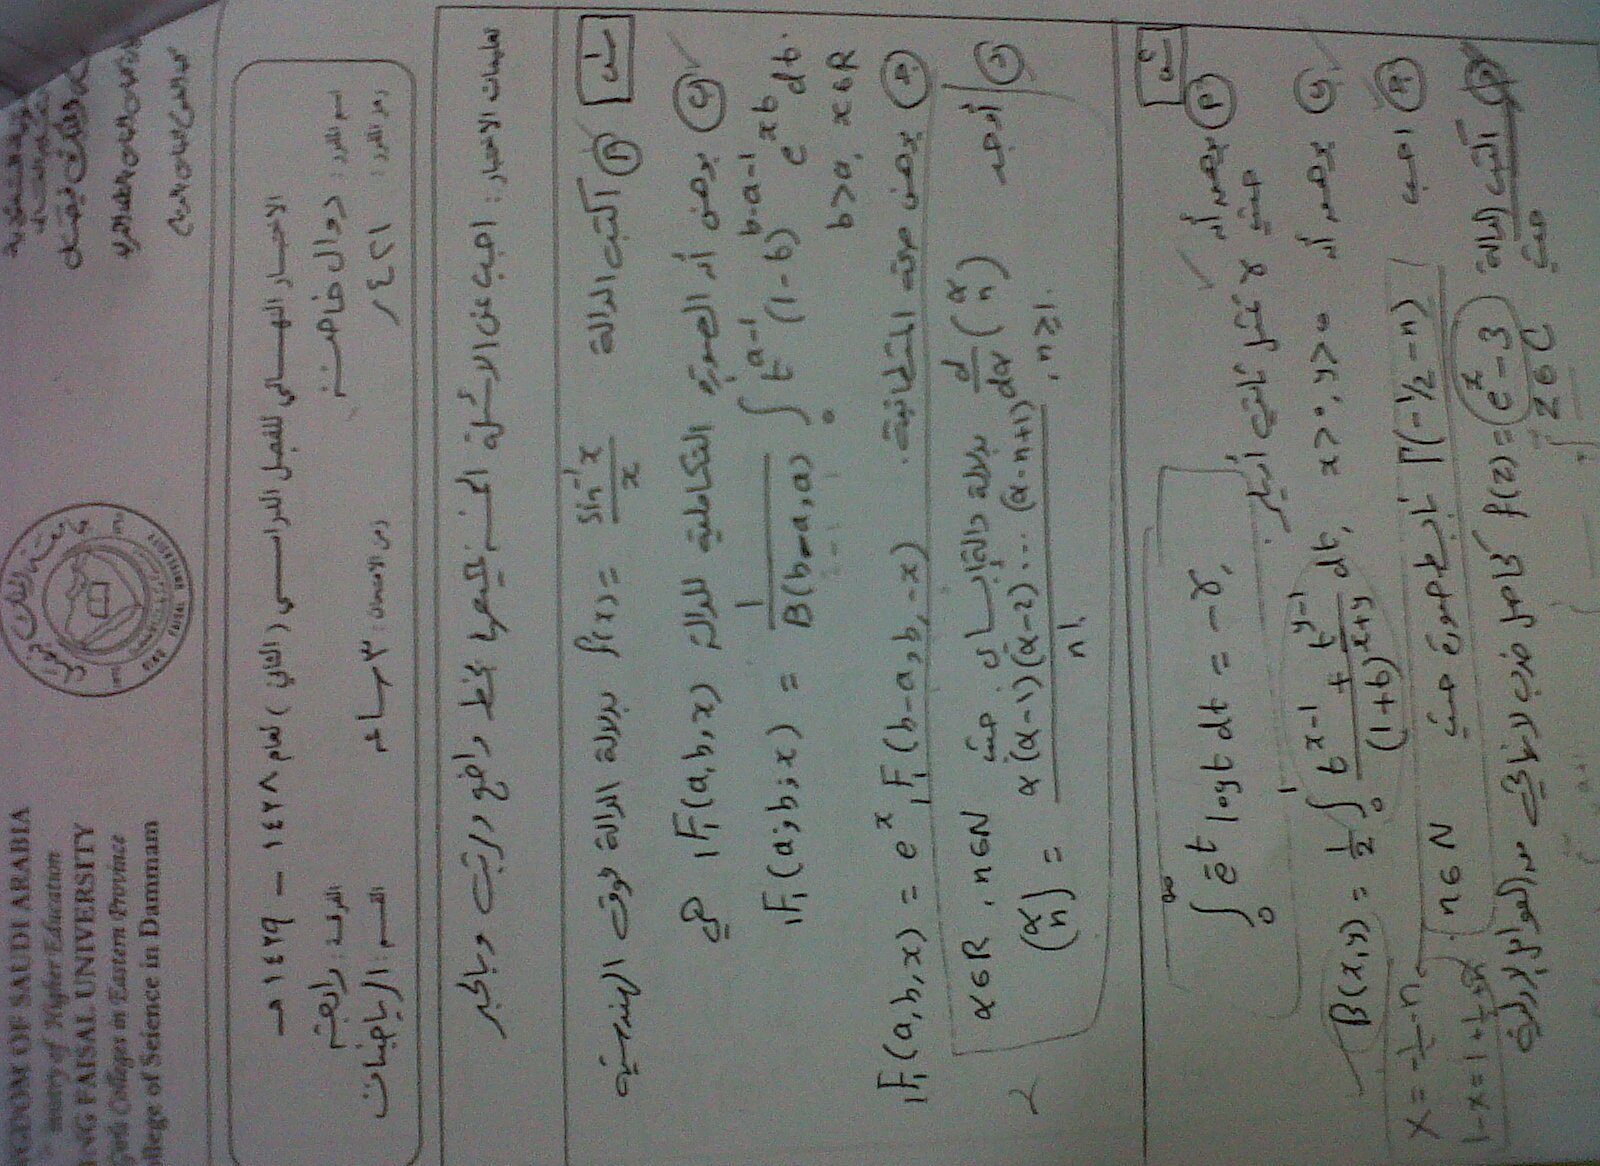 KINGDOM OF SAUDI ARABIA
Ministry of Higher Education
KING FAISAL UNIVERSITY
Girls Colleges in Eastern Province
College of Science in Dammam
الاختبار النهائي للفصل الدراسي (الثاني) لعام ١٤٢٨ - ١٤٢٩ هـ
اسم المقرر: دوال خاصة
الفرقة: رابعة
رمز المقرر: ٤٢١ ر
زمن الامتحان: ٣ ساعه
القسم: الرياضيات
تعليمات الاختبار: اجب عن الاسئلة
بخط واضح ومرتب وبالحبر
أ) اكتب الدالة f(x) = sin⁻¹x / x بدلالة الدالة فوق الهندسية
ب) برهن أن الصورة التكاملية للدالة ₁F₁(a,b,x) هي
₁F₁(a;b;x) = 1/B(b-a,a) ∫₀ t^(a-1) (1-t)^(b-a-1) e^(xt) dt.
b>a, x∈R
برهن صحة المتطابقة.
₁F₁(a,b,x) = e^x ₁F₁(b-a,b,-x)
أوجد d/dα (α n) بدلالة دالة بساي حيث α∈R, n∈N
(α n) = α(α-1)(α-2)...(α-n+1) / n! , n≥1.
أ) برهن أن
∫₀^∞ e^-t log t dt = -γ,
حيث γ تمثل ثابت أويلر.
ب) برهن أن x>0, y>0
B(x,y) = 1/2 ∫₀^1 (t^(x-1) + t^(y-1)) / (1+t)^(x+y) dt,
احسب Γ(-1/2-n) بأبسط صورة حيث n∈N.
x = -1/2-n
اكتب الدالة f(z) = e^z - 3 كحاصل ضرب لانهائي من العوامل الأولية
حيث z∈C